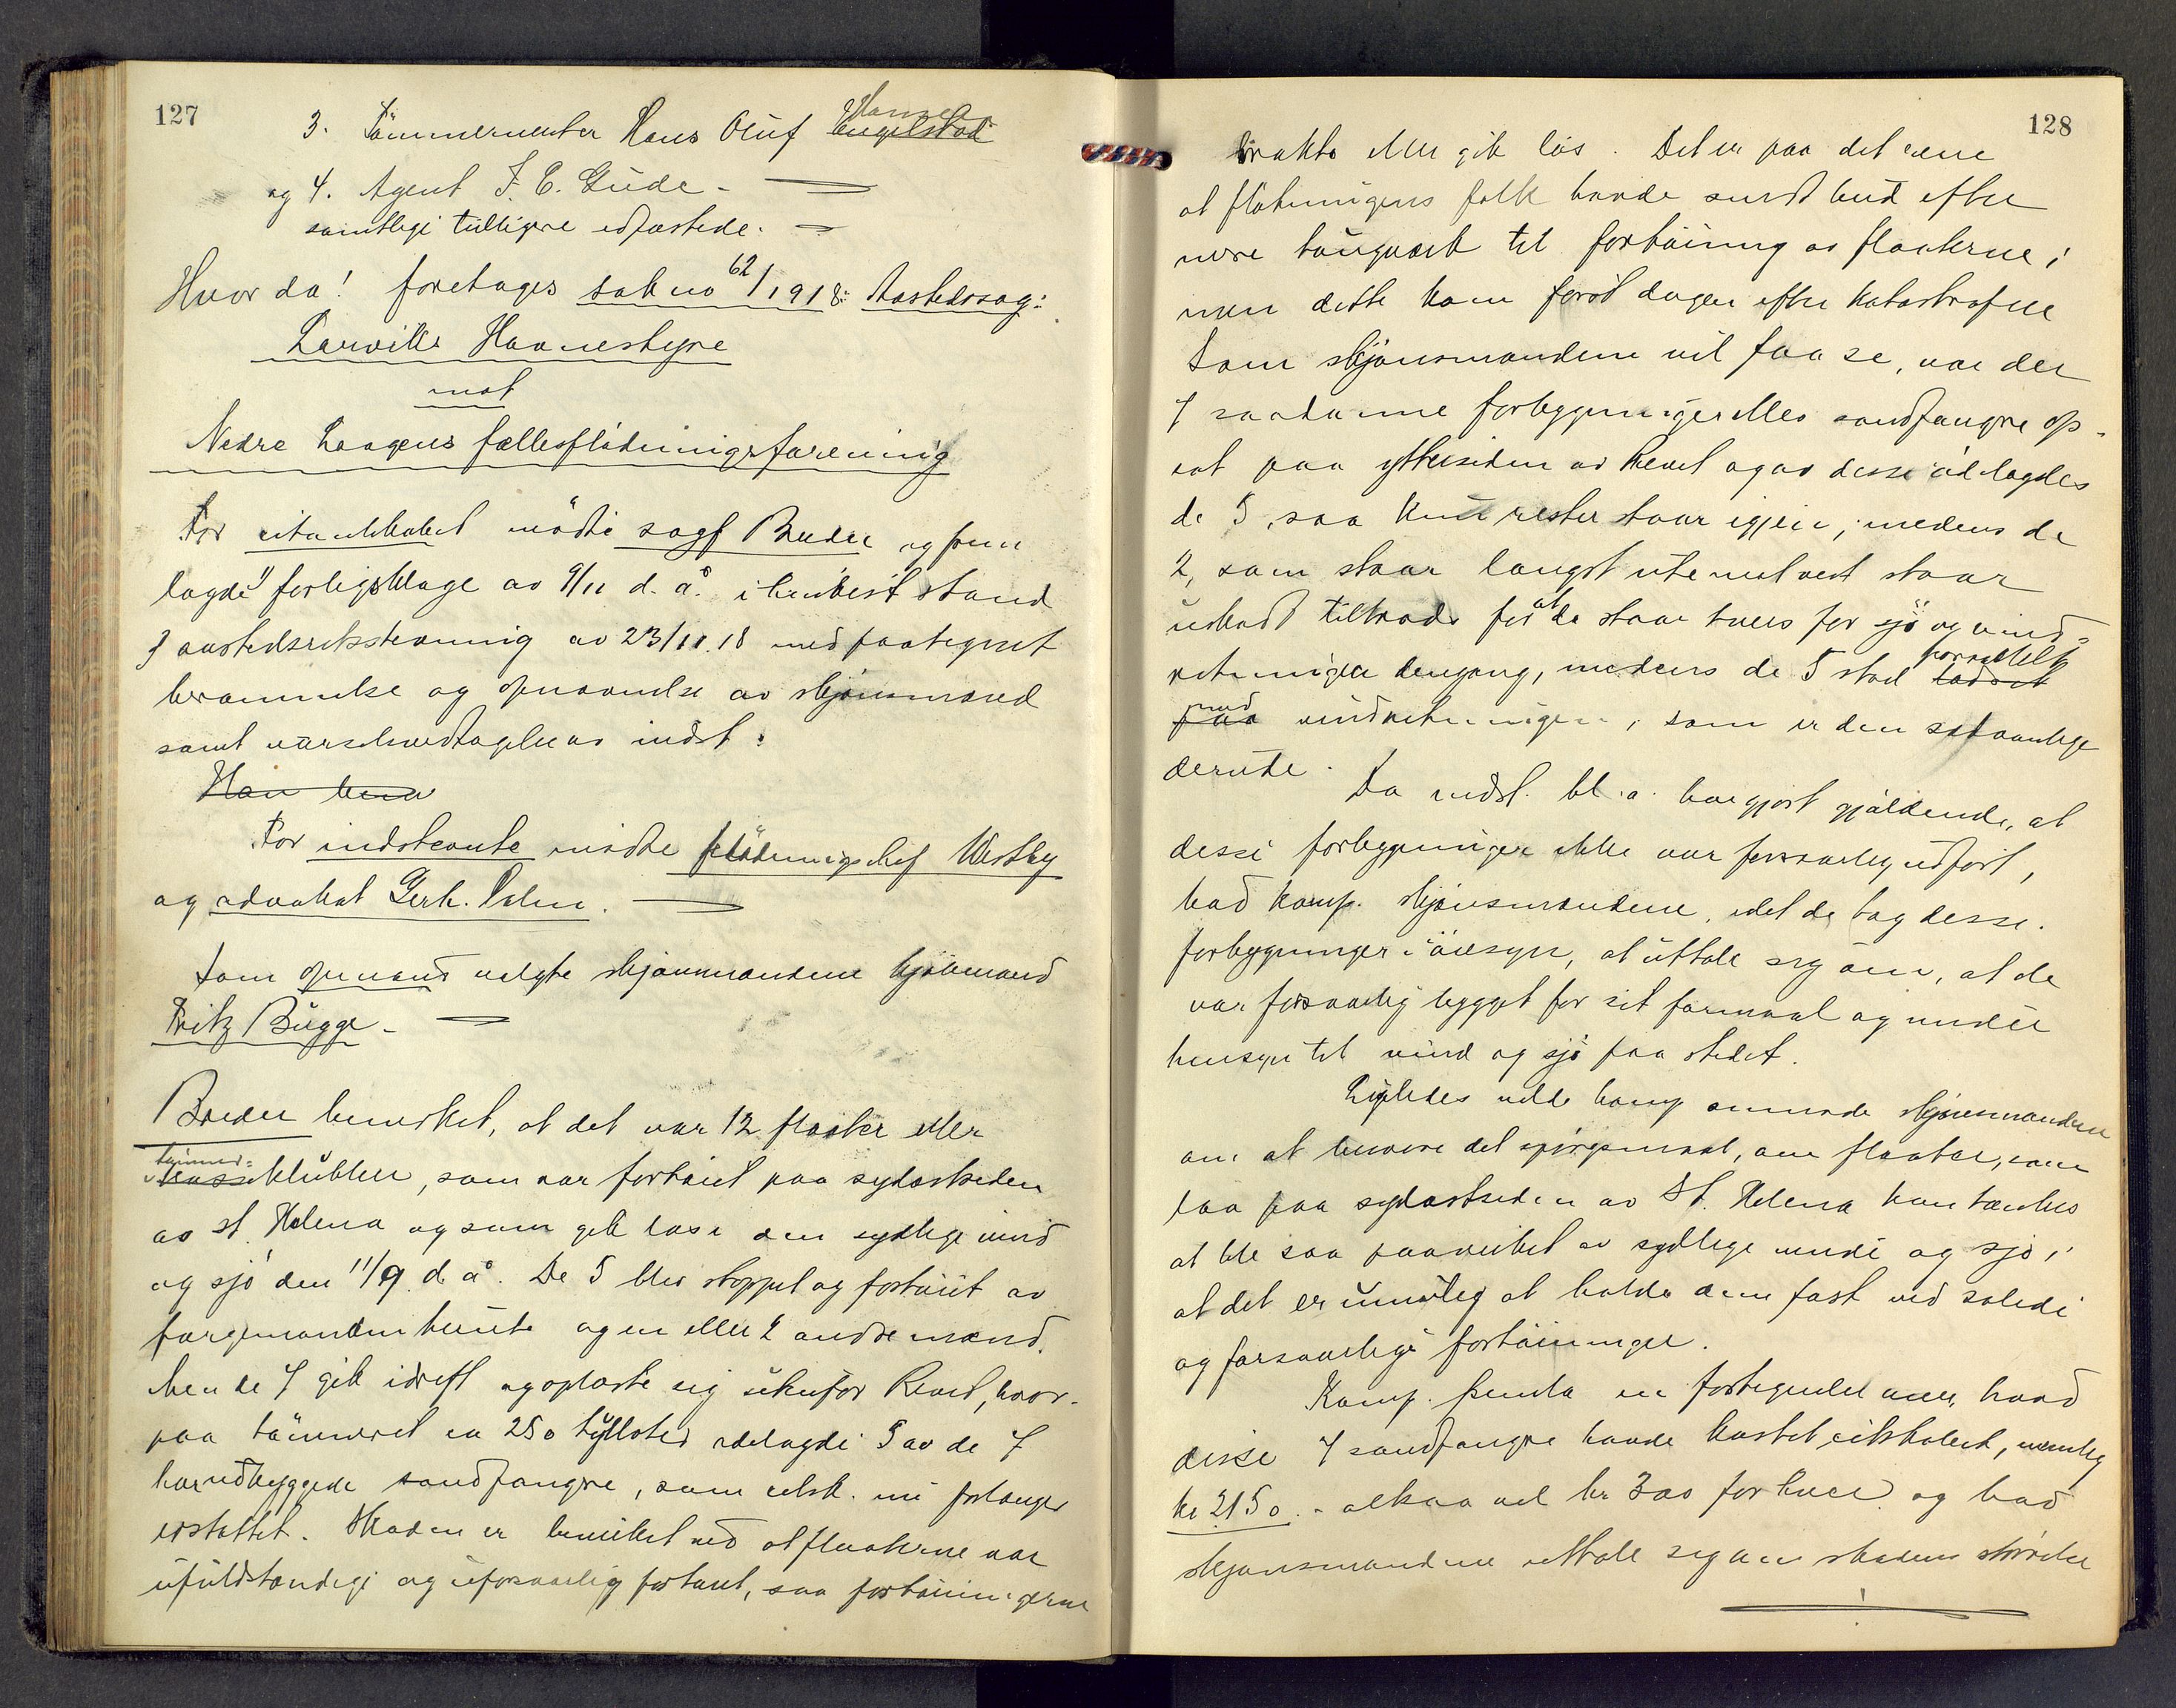 127
3. Tömmermester Hans Oluf Engelstad Hansen
og 4. Agent F. E. Gude. —
samtlige tidligere edfæstede. —
Hvorda! foretages sak no 62/1918: Aastedssag:
Larviks Havnestyre
mot
Nedre Laagens fællesflötningsforening
For citantskabet mötte sagf Breder og frem
lagde 1) forligsklage av 9/11 d. å. i henvist stand
aastedsretsstevning av 23/11.18 med paategnet
berammelse og opnævnelse av skjönsmænd
samt varselsvedtagelse av indst.
Han bem
For indstevnte mödte flötningschef Westby
og advokat Gerh. Palm. —
Som opmand valgte skjönsmændene kjöbmand
Fritz Bugge. —
Breder bemerket, at det var 12 flaaker eller
tömmer=
klubber, som var fortöiet paa sydostsiden
av St. Helena og som gik lös i den sydlige vind
og sjö den 11/9. d. å. De 5 blev stoppet og fortöiet av
og en eller 2 andre mænd.
Men de 7 gik i drift og oplöste sig utenfor Revet, hvor-
paa tömmeret ca 250 tylfter ödelagde 5 av de 7
utbyggede sandfangere, som citsk. nu forlanger
erstattet. Skaden er bevirket ved at flaakerne var
ufuldstændige og uforsvarlig fortöiet, saa fortöiningerne
128
brakk eller gik lös. Det er paa det rene
at flötningens folk havde sendt bud efter
mere taugverk til fortöining av flaakerne,
men dette kom först dagen efter katastrofen
Som skjönsmændene vil faa se, var der
7 saadanne forbygninger eller sandfangere op-
sat paa yttersiden av Revet og av disse ödelagdes
de 5, saa kun rester staar igjen, medens de
2, som staar længst ute mot vest staar
uskadt tiltrods for at de staar tvers for sjö og vind=
retningen dengang, medens de 5 stod parallelt
med vindretningen, som er den sedvanlige
derute.
Da indst. bl. a. har gjort gjældende, at
disse forbygninger ikke var forsvarlig utfört,
bad komp. skjönsmændene, idet de tog disse
forbygninger i öiesyn, at uttale sig om, at de
var forsvarlig bygget for sit formaal og under
hensyn til vind og sjö paa stedet.
Ligeledes vilde komp anmode skjönsmændene
om at besvare det spörgsmaal, om flaaker, som
laa paa sydostsiden av St. Helena kan tænkes
at bli saa paavirket av sydlige vinde og sjö,
at det er umulig at holde dem fast ved solide
og forsvarlige fortöininger.
Komp. fremla en fortegnelse over, hvad
disse 7 sandfangere havde kostet citskabet, nemlig
kr 2150. - altsaa vel kr 300 for hver og bad
skjönsmændene uttale sig om skadens störrelse